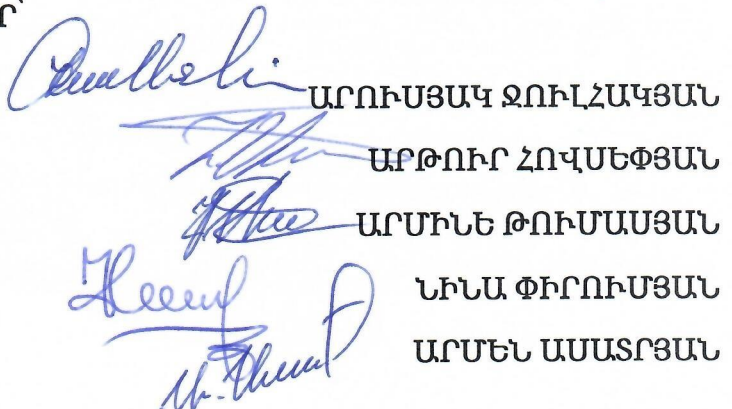 ԱՐՈՒՍՅԱԿ ՋՈՒԼՀԱԿՅԱՆ
ԱՐԹՈՒՐ ՀՈՎՍԵՓՅԱՆ
ԱՐՄԻՆԵ ԹՈՒՄԱՍՅԱՆ
ՆԻՆԱ ՓԻՐՈՒՄՅԱՆ
ԱՐՄԵՆ ԱՍԱՏՐՅԱՆ